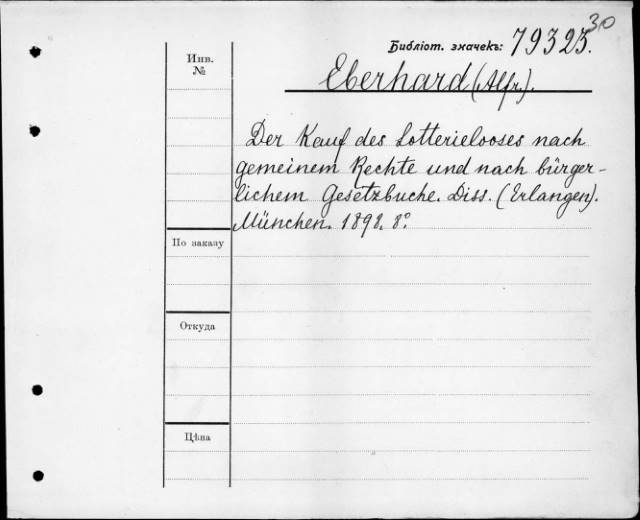 30
Библіот. значекъ: 79325.
Инв.
№
Eberhard (Alfr.).
Der Kauf des Lotterielooses nach
gemeinem Rechte und nach bürger-
lichem Gesetzbuche. Diss. (Erlangen).
München. 1898. 8°
По заказу
Откуда
Цѣна